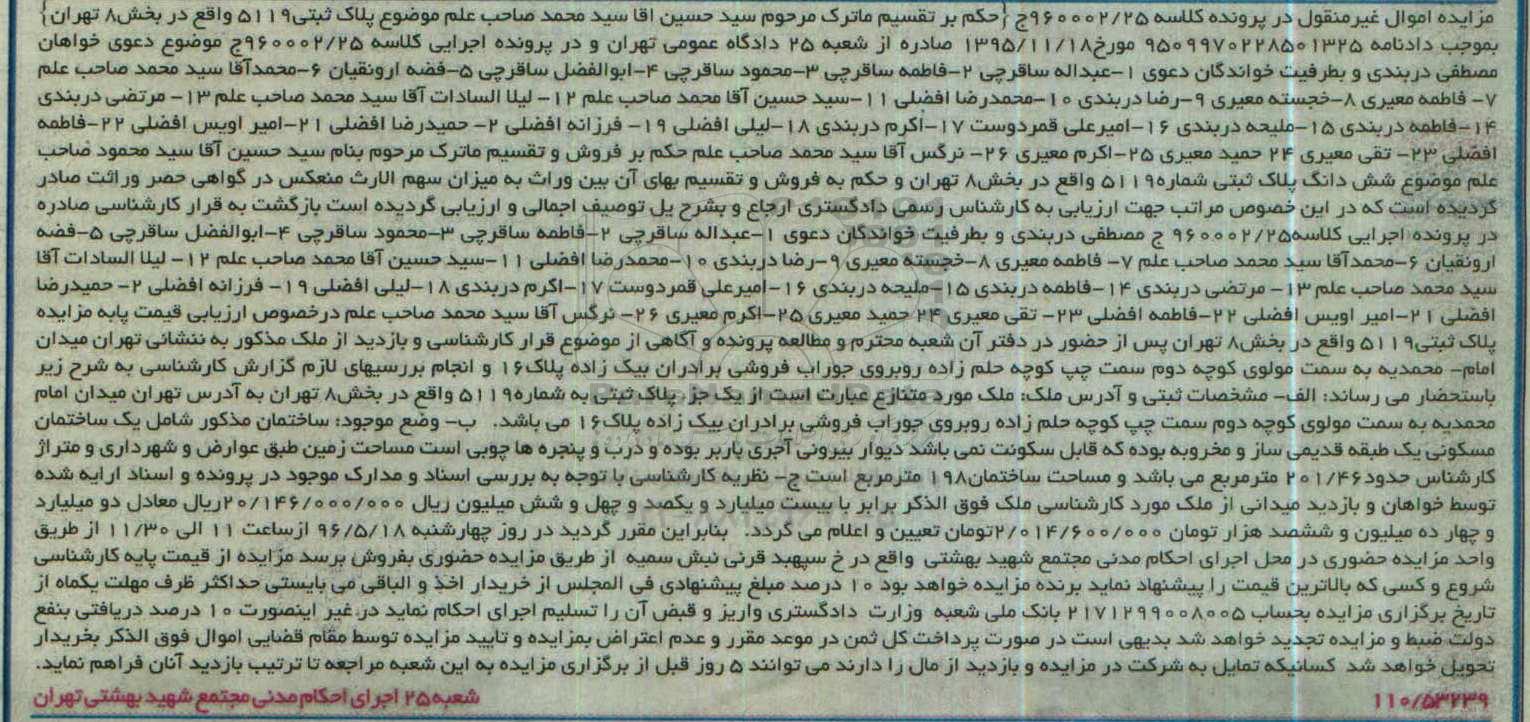 مزایده اموال غیرمنقول در پرونده کلاسه ۹۶۰۰۰۲/۲۵ج {حکم بر تقسیم ماترک مرحوم سید حسین اقا سید محمد صاحب علم موضوع پلاک ثبتی۵۱۱۹ واقع در بخش۸ تهران}
بموجب دادنامه ۹۵۰۹۹۷۰۲۲۸۵۰۱۳۲۵ مورخ۱۳۹۵/۱۱/۱۸ صادره از شعبه ۲۵ دادگاه عمومی تهران و در پرونده اجرایی کلاسه ۹۶۰۰۰۲/۲۵ج موضوع دعوی خواهان
مصطفی دربندی و بطرفیت خواندگان دعوی ۱-عبداله ساقرچی ۲-فاطمه ساقرچی ۳-محمود ساقرچی ۴-ابوالفضل ساقرچی ۵-فضه ارونقیان ۶-محمدآقا سید محمد صاحب علم
۷- فاطمه معیری ۸-خجسته معیری ۹-رضا دربندی ۱۰-محمدرضا افضلی ۱۱-سید حسین آقا محمد صاحب علم ۱۲- لیلا السادات آقا سید محمد صاحب علم ۱۳- مرتضی دربندی
۱۴-فاطمه دربندی ۱۵-ملیحه دربندی ۱۶-امیرعلی قمردوست ۱۷-اکرم دربندی ۱۸-لیلی افضلی ۱۹- فرزانه افضلی ۲- حمیدرضا افضلی ۲۱-امیر اویس افضلی ۲۲-فاطمه
افضلی ۲۳- تقی معیری ۲۴ حمید معیری ۲۵-اکرم معیری ۲۶- نرگس آقا سید محمد صاحب علم حکم بر فروش و تقسیم ماترک مرحوم بنام سید حسین آقا سید محمود صاحب
علم موضوع شش دانگ پلاک ثبتی شماره۵۱۱۹ واقع در بخش۸ تهران و حکم به فروش و تقسیم بهای آن بین وراث به میزان سهم الارث منعکس در گواهی حصر وراثت صادر
گردیده است که در این خصوص مراتب جهت ارزیابی به کارشناس رسمی دادگستری ارجاع و بشرح یل توصیف اجمالی و ارزیابی گردیده است بازگشت به قرار کارشناسی صادره
در پرونده اجرایی کلاسه۹۶۰۰۰۲/۲۵ ج مصطفی دربندی و بطرفیت خواندگان دعوی ۱-عبداله ساقرچی ۲-فاطمه ساقرچی ۳-محمود ساقرچی ۴-ابوالفضل ساقرچی ۵-فضه
ارونقیان ۶-محمدآقا سید محمد صاحب علم ۷- فاطمه معیری ۸-خجسته معیری ۹-رضا دربندی ۱۰-محمدرضا افضلی ۱۱-سید حسین آقا محمد صاحب علم ۱۲- لیلا السادات آقا
سید محمد صاحب علم ۱۳- مرتضی دربندی ۱۴-فاطمه دربندی ۱۵-ملیحه دربندی ۱۶-امیرعلی قمردوست ۱۷-اکرم دربندی ۱۸-لیلی افضلی ۱۹- فرزانه افضلی ۲- حمیدرضا
افضلی ۲۱-امیر اویس افضلی ۲۲-فاطمه افضلی ۲۳- تقی معیری ۲۴ حمید معیری ۲۵-اکرم معیری ۲۶- نرگس آقا سید محمد صاحب علم درخصوص ارزیابی قیمت پایه مزایده
پلاک ثبتی۵۱۱۹ واقع در بخش۸ تهران پس از حضور در دفتر آن شعبه محترم و مطالعه پرونده و آگاهی از موضوع قرار کارشناسی و بازدید از ملک مذکور به ننشانی تهران میدان
امام- محمدیه به سمت مولوی کوچه دوم سمت چپ کوچه حلم زاده روبروی جوراب فروشی برادران بیک زاده پلاک۱۶ و انجام بررسیهای لازم گزارش کارشناسی به شرح زیر
باستحضار می رساند: الف- مشخصات ثبتی و آدرس ملک: ملک مورد متنازع عبارت است از یک جزء پلاک ثبتی به شماره۵۱۱۹ واقع در بخش۸ تهران به آدرس تهران میدان امام
محمدیه به سمت مولوی کوچه دوم سمت چپ کوچه حلم زاده روبروی جوراب فروشی برادران بیک زاده پلاک۱۶ می باشد. ب- وضع موجود: ساختمان مذکور شامل یک ساختمان
مسکونی یک طبقه قدیمی ساز و مخروبه بوده که قابل سکونت نمی باشد دیوار بیرونی آجری باربر بوده و درب و پنجره ها چوبی است مساحت زمین طبق عوارض و شهرداری و متراژ
کارشناس حدود۲۰۱/۴۶ مترمربع می باشد و مساحت ساختمان۱۹۸ مترمربع است ج- نظریه کارشناسی با توجه به بررسی اسناد و مدارک موجود در پرونده و اسناد ارایه شده
توسط خواهان و بازدید میدانی از ملک مورد کارشناسی ملک فوق الذکر برابر با بیست میلیارد و یکصد و چهل و شش میلیون ریال ۲۰/۱۴۶/۰۰۰/۰۰۰ریال معادل دو میلیارد
و چهار ده میلیون و ششصد هزار تومان ۲/۰۱۴/۶۰۰/۰۰۰تومان تعیین و اعلام می گردد. بنابراین مقرر گردید در روز چهارشنبه ۹۶/۵/۱۸ ازساعت ۱۱ الی ۱۱/۳۰ از طریق
واحد مزایده حضوری در محل اجرای احکام مدنی مجتمع شهید بهشتی واقع در خ سپهبد قرنی نبش سمیه از طریق مزایده حضوری بفروش برسد مزایده از قیمت پایه کارشناسی
شروع و کسی که بالاترین قیمت را پیشنهاد نماید برنده مزایده خواهد بود ۱۰ درصد مبلغ پیشنهادی فی المجلس از خریدار اخذ و الباقی می بایستی حداکثر ظرف مهلت یکماه از
تاریخ برگزاری مزایده بحساب ۲۱۷۱۲۹۹۰۰۸۰۰۵ بانک ملی شعبه وزارت دادگستری واریز و قبض آن را تسلیم اجرای احکام نماید در غیر اینصورت ۱۰ درصد دریافتی بنفع
دولت ضبط و مزایده تجدید خواهد شد بدیهی است در صورت پرداخت کل ثمن در موعد مقرر و عدم اعتراض بمزایده و تایید مزایده توسط مقام قضایی اموال فوق الذکر بخریدار
تحویل خواهد شد کسانیکه تمایل به شرکت در مزایده و بازدید از مال را دارند می توانند ۵ روز قبل از برگزاری مزایده به این شعبه مراجعه تا ترتیب بازدید آنان فراهم نماید.
۱۱۰/۵۳۲۳۹ شعبه۲۵ اجرای احکام مدنی مجتمع شهید بهشتی تهران